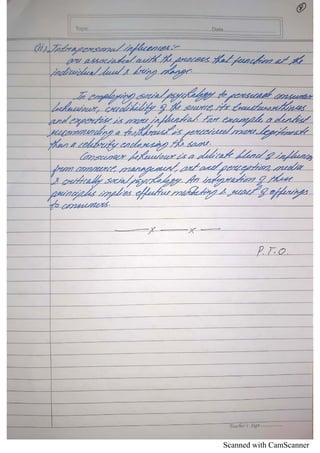 Topic
Date
(ii) Intrapersonal influences :-
are associated with the process that function at the
individual level & bring change.
In employing social psychology to persuade consumer
behaviour, credibility of the source, its trustworthiness
and expertise is more influential. For example, a dentist
recommending a toothbrush is perceived more legitimate
than a celebrity endorsing the same.
Consumer behaviour is a delicate blend of influences
from commerce, management, art and perception, media
& critically social psychology. An integration of these
principles implies effective marketing & reset of offerings
to consumers.
P.T.O.
Teacher's Sign
Scanned with CamScanner